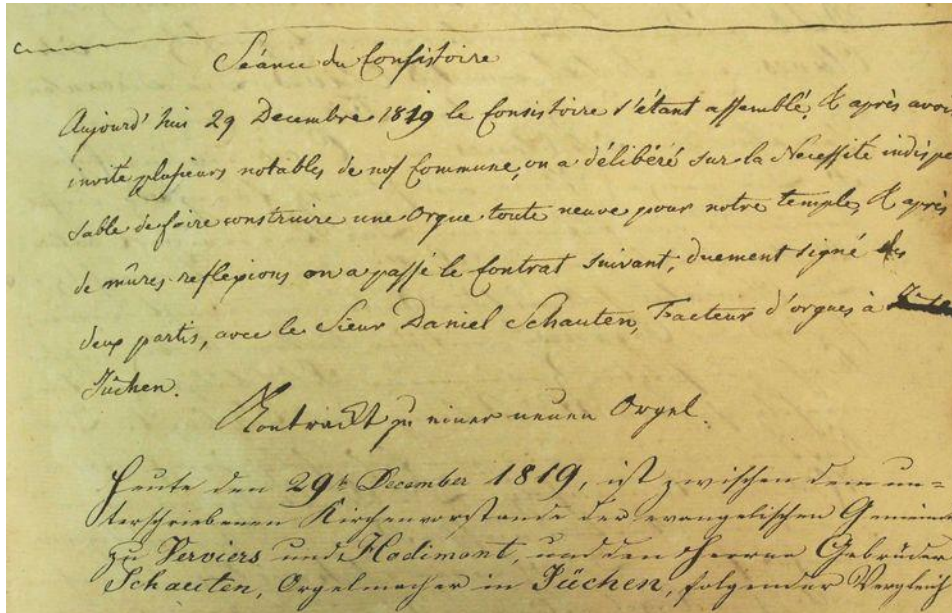 Séance du Consistoire
Aujourd'hui 29 Decembre 1819 le Consistoire s'étant assemblé, & après avoir
invité plusieurs notables de nos Commune, on a délibéré sur la Necessité indispe
sable de faire construire une Orgue toute neuve pour notre temple, & après
de mûres reflexions on a passé le Contrat suivant, duement signé des
deux partis, avec le Sieur Daniel Schauten, Facteur d'orgues à
Jüchen.
Kontrackt zu einer neuen Orgel.
Heute den 29t December 1819, ist zwischen dem un=
terschriebenen Kirchenvorstande der evangelischen Gemeinde
zu Verviers und Hodimont, und den Herren Gebrüder
Schauten, Orgelmacher in Jüchen, folgender Vergleich